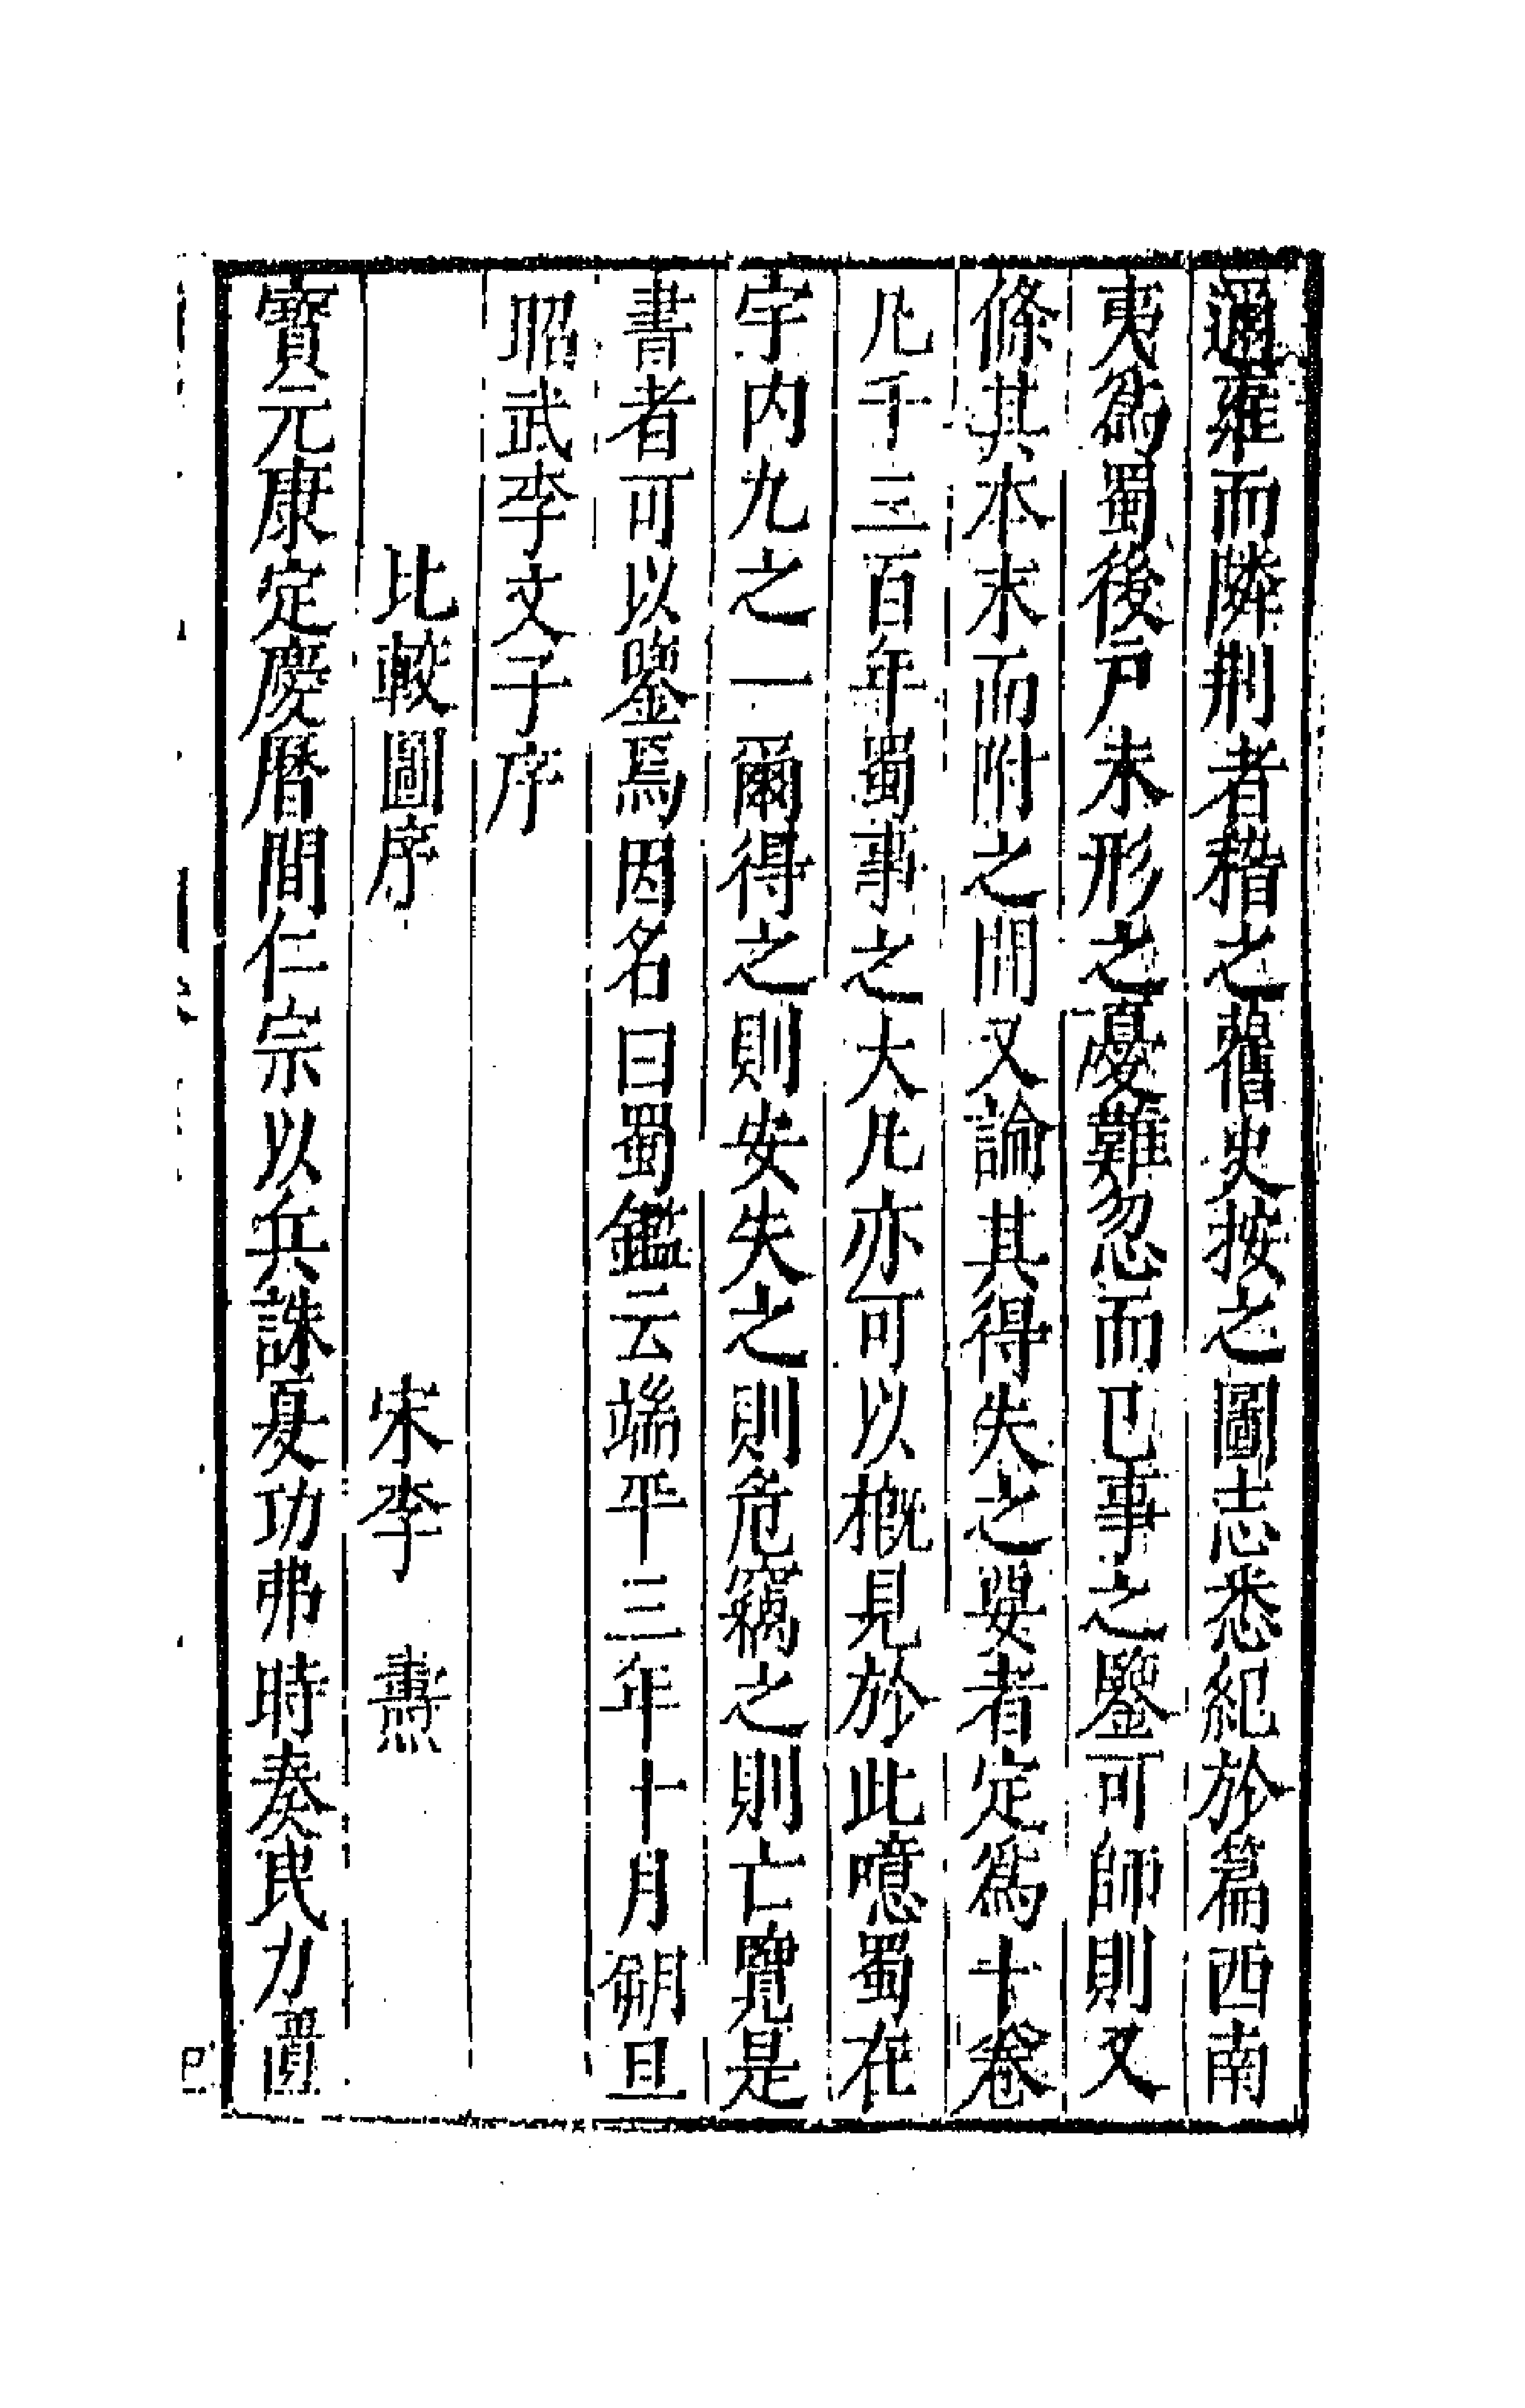 邇雍而隣荆者稽之舊史按之圖志悉紀於篇西南
夷爲蜀後戸未形之憂難忽而已事之鑒可師則又
條其本末而附之間又論其得失之要者定爲十卷
凡千三百年蜀事之大凡亦可以槪見於此噫蜀在
宇内九之一爾得之則安失之則危竊之則亡覽是
書者可以鑒焉因名曰蜀鑑云端平三年十月朔旦
昭武李文子序
比較圖序 宋李燾
寶元康定慶曆間仁宗以兵誅夏功弗時奏民力匱